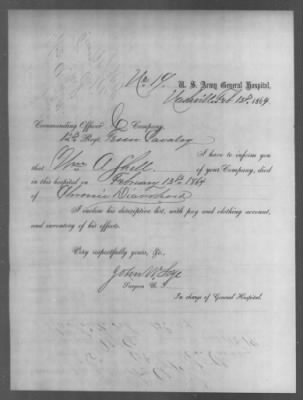 No 19.
U. S. Army General Hospital,
Nashville Feb 13th, 1864.
Commanding Officer D Company,
12th Reg't Tenn Cavalry
I have to inform you
that Wm A. Shell of your Company, died
in this hospital on February 13th 1864
of Chronic Diarrhoea
I enclose his descriptive list, with pay and clothing account,
and inventory of his effects.
Very respectfully yours, &c.,
John W.
Surgeon U. S.
In charge of General Hospital.